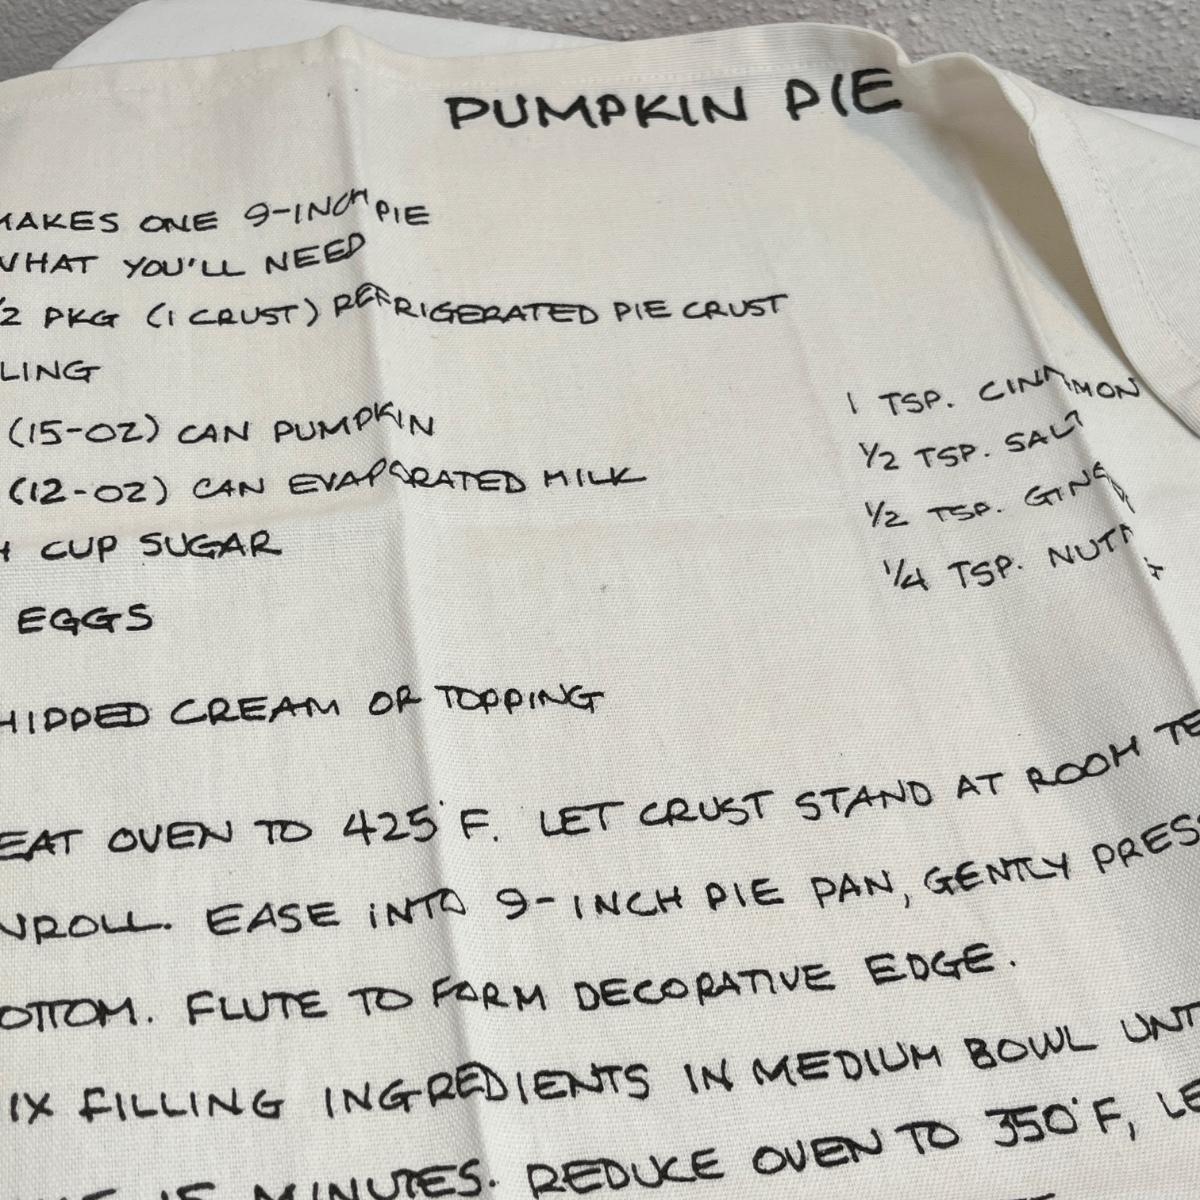 PUMPKIN PIE
MAKES ONE 9-INCH PIE
WHAT YOU'LL NEED
/2 PKG (1 CRUST) REFRIGERATED PIE CRUST
LING
(15-OZ) CAN PUMPKIN
(12-OZ) CAN EVAPORATED MILK
CUP SUGAR
EGGS
1 TSP. CINNAMON
1/2 TSP. SALT
1/2 TSP. GING
1/4 TSP. NUTM
HIPPED CREAM OR TOPPING
EAT OVEN TO 425°F. LET CRUST STAND AT ROOM TE
NROLL. EASE INTO 9-INCH PIE PAN, GENTLY PRESS
OTTOM. FLUTE TO FORM DECORATIVE EDGE.
IX FILLING INGREDIENTS IN MEDIUM BOWL UNT
15 MINUTES. REDUCE OVEN TO 350°F, LE